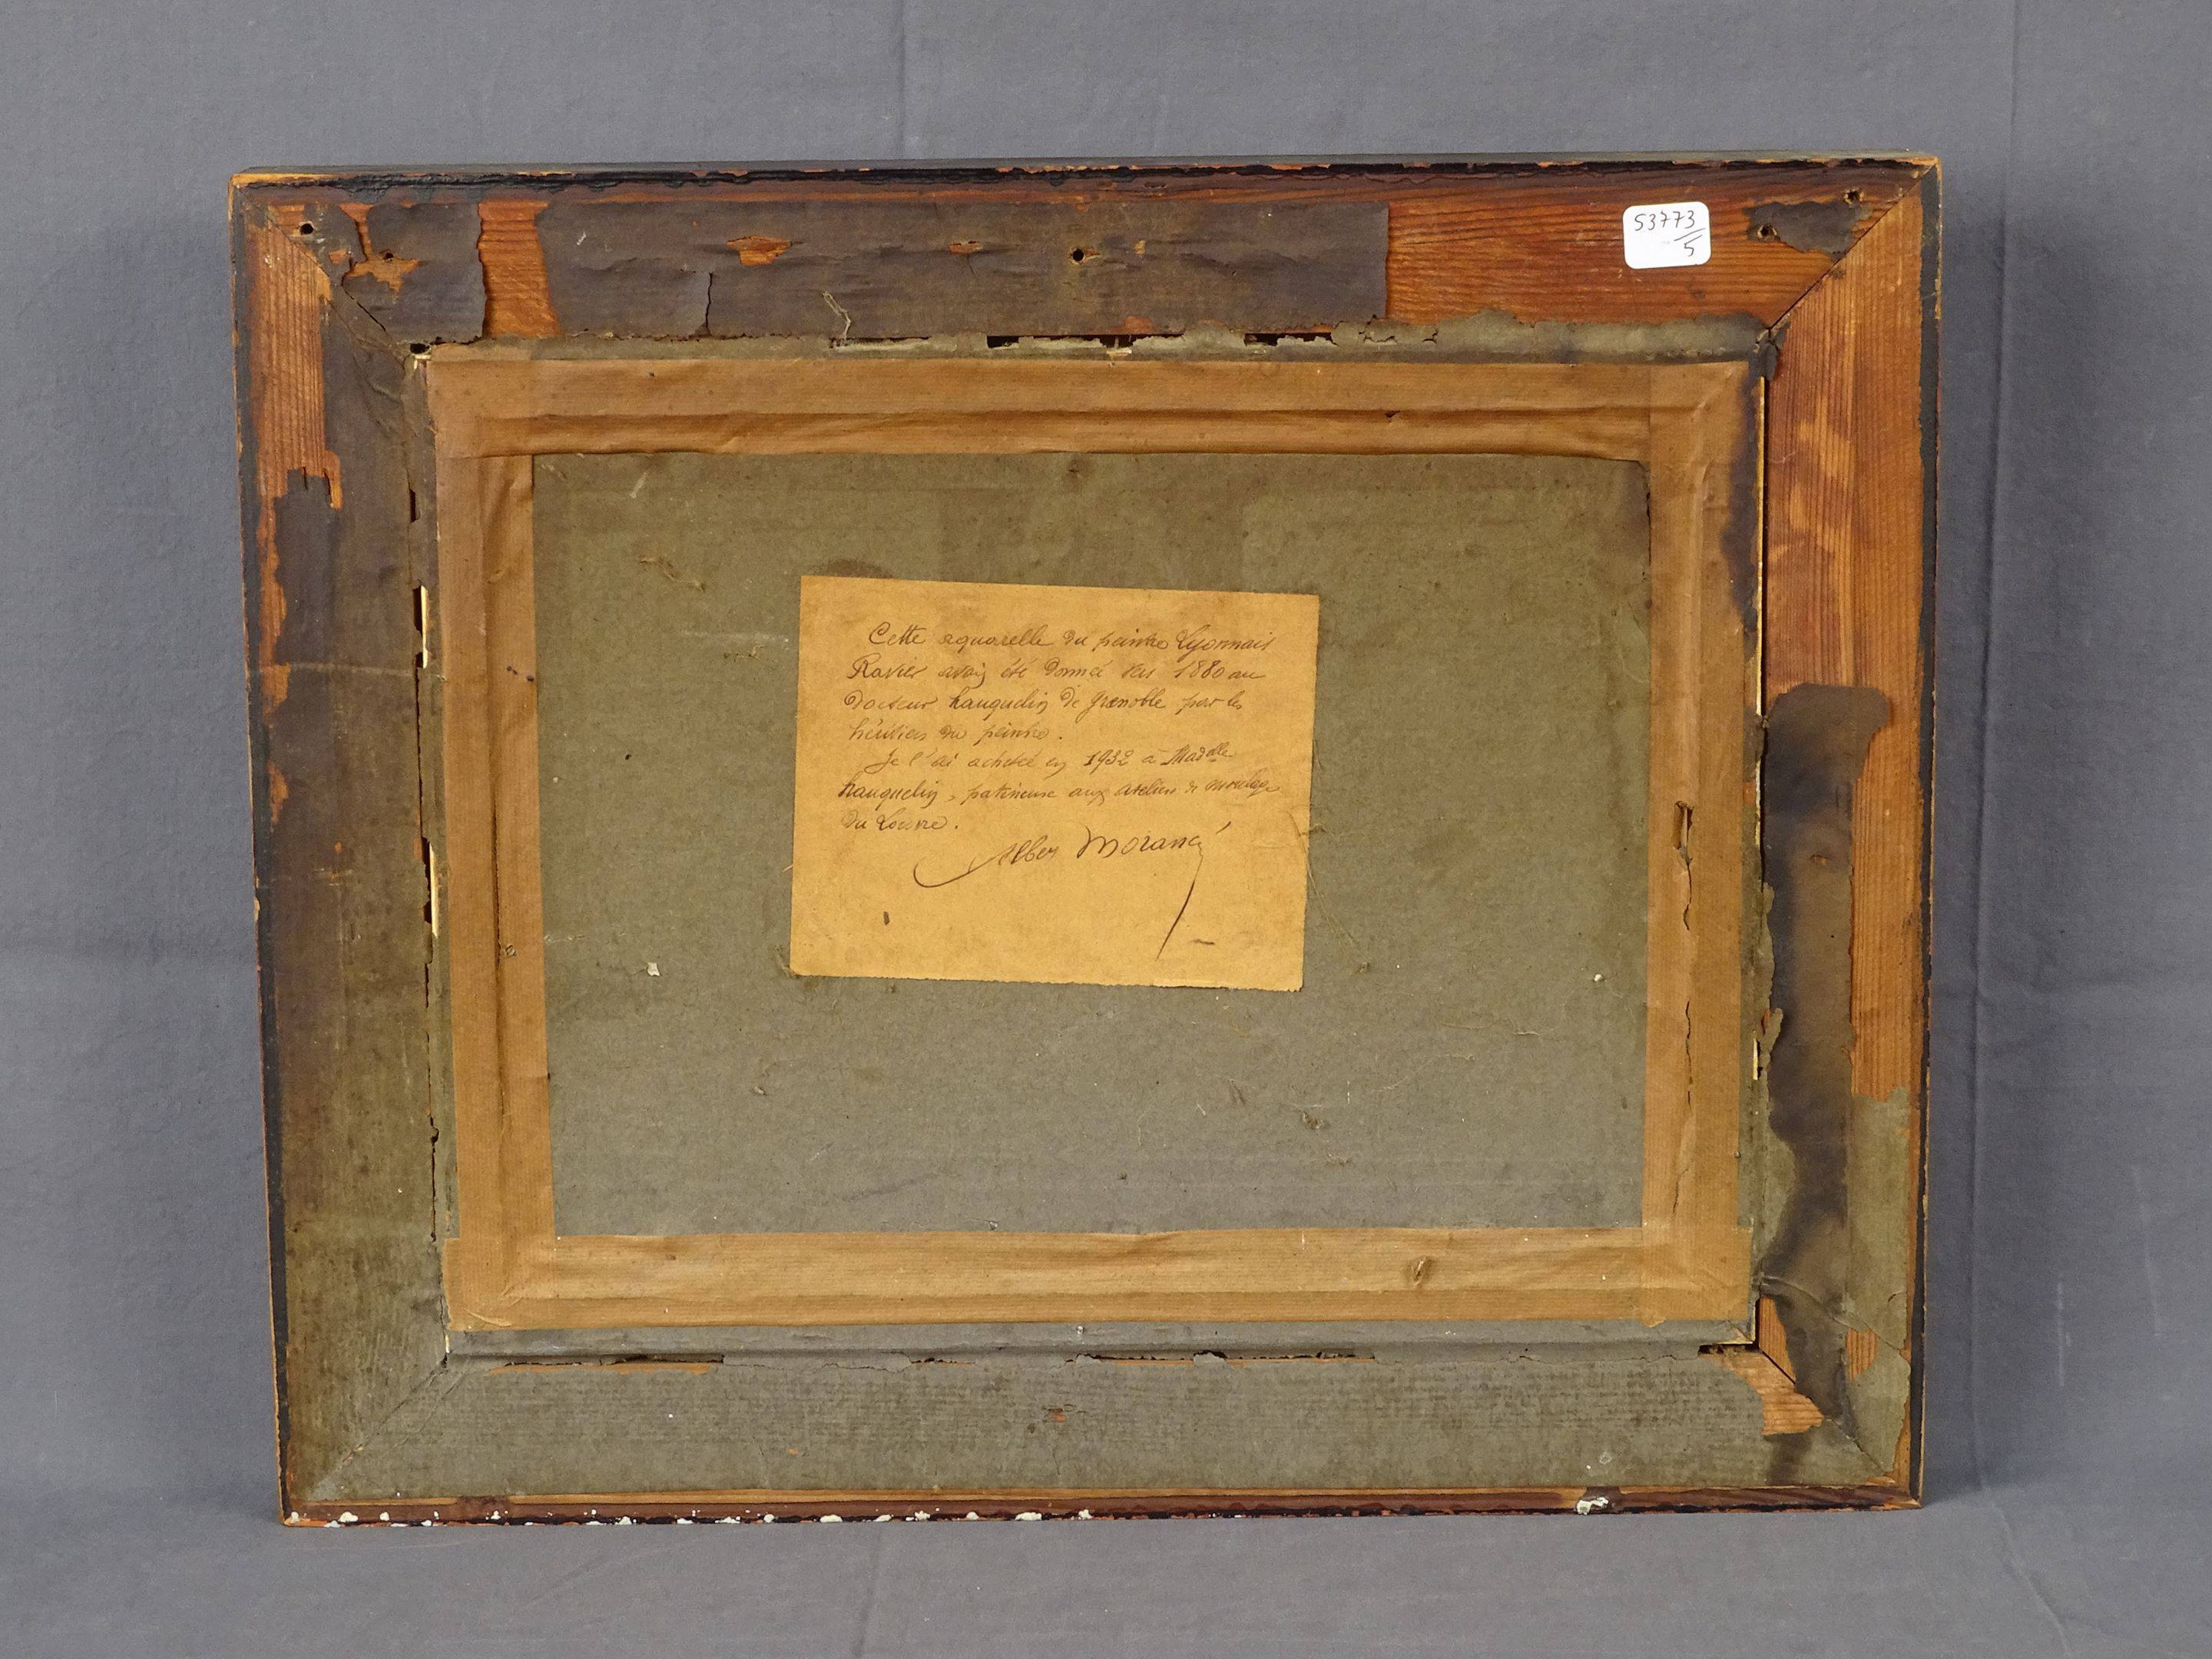 53773
/5
Cette aquarelle du peintre Lyonnais
Ravier avait été donnée vers 1880 au
docteur hauquelin de Grenoble par les
héritiers du peintre.
Je l'ai achetée en 1932 à Madelle
hauquelin, patineuse aux ateliers de moulage
du Louvre.
Albert Morancé